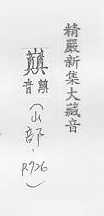 精嚴新集大藏音
巔 顛音（山部，